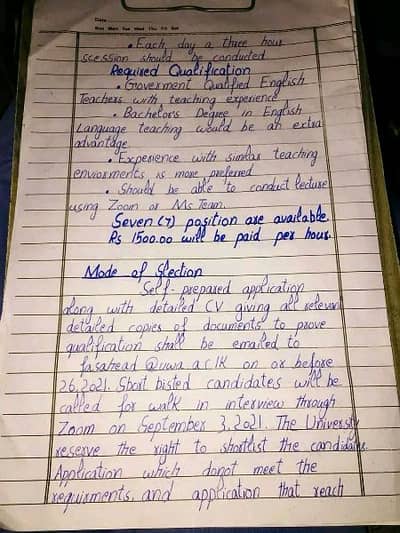 Date
Sun Mon Tue Wed Thu Fri Sat
• Each day a three hour
scession should be conducted
Required Qualification
• Goverment Qualified English
Teachers with teaching experience
• Bachelors Degree in English
Language teaching would be an extra
advantage
• Experience with similar teaching
enviorments is more preferred
• Should be able to conduct lecture
using Zoom or Ms Team.
Seven (7) position are available.
Rs 1500.00 will be paid per hour.
Mode of Slection
Self-prepared application
along with detailed CV giving all relevan
detailed copies of documents to prove
qualification shall be emailed to
fasahead@uwa.ac.lk on or before
26,2021. Short listed candidates will be
called for walk in interview through
Zoom on September 3,2021. The University
reserve the right to shortlist the
Application which donot meet the
requirments, and application that reach